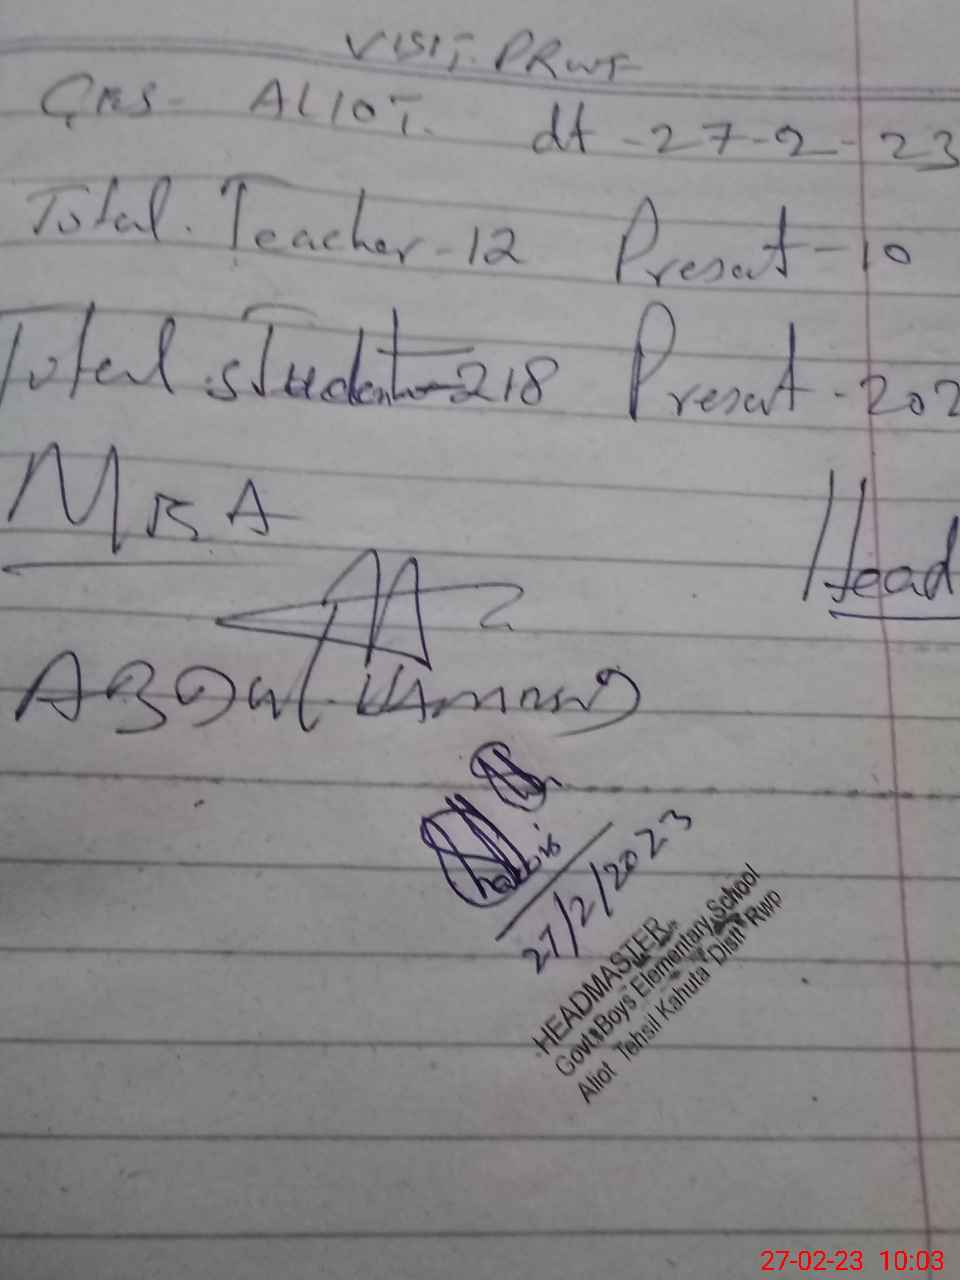 VISIT. PRWF
GES- ALIOT. dt -27-2-23
Total. Teacher-12 Present-10
Total student-218 Present-202
MEA Head
27/2/2023
HEADMASTER
Govt. Boys Elementary School
Aliot Tehsil Kahuta Distt Rwp
27-02-23 10:03